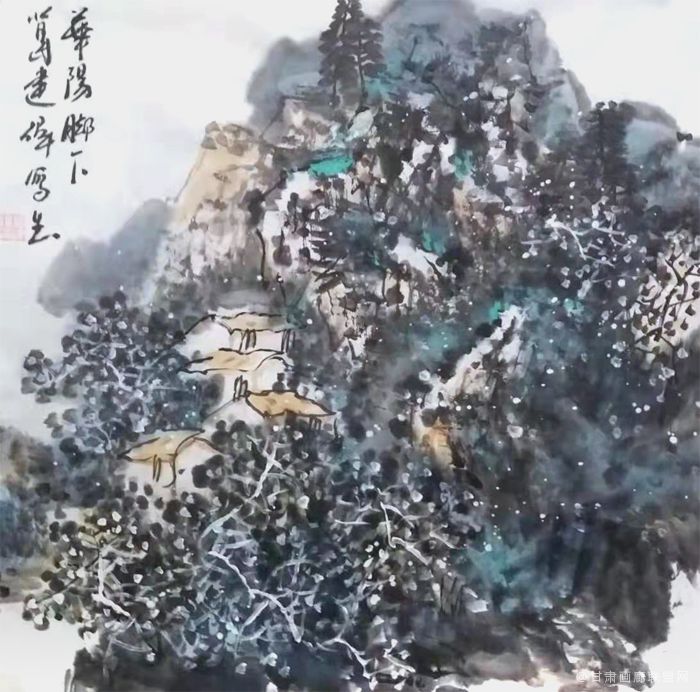 華陽腳下
葛建偉寫生
@甘肃画廊联盟网